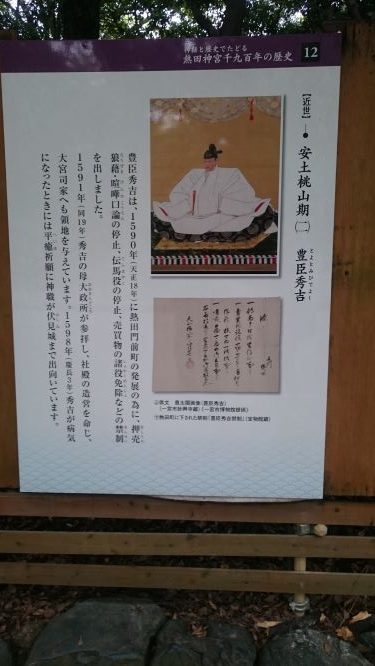 神話と歴史でたどる
熱田神宮千九百年の歴史
12
【近世】
安土桃山期(二)
豊臣秀吉
とよとみひでよし
豊臣秀吉は、1590年(天正18年)に熱田門前町の発展の為に、押売
狼藉・喧嘩口論の停止、伝馬役の停止、売買物の諸役免除などの禁制
を出しました。
1591年(同19年)秀吉の母大政所が参拝し、社殿の造営を命じ、
大宮司家へも領地を与えています。1598年(慶長3年)秀吉が病気
になったときには平癒祈願に神職が伏見城まで出向いています。
豊太閤画像(豊臣秀吉)
(一宮市妙興寺蔵)(一宮市博物館提供)
熱田町に下された禁制「豊臣秀吉禁制」(宝物館蔵)